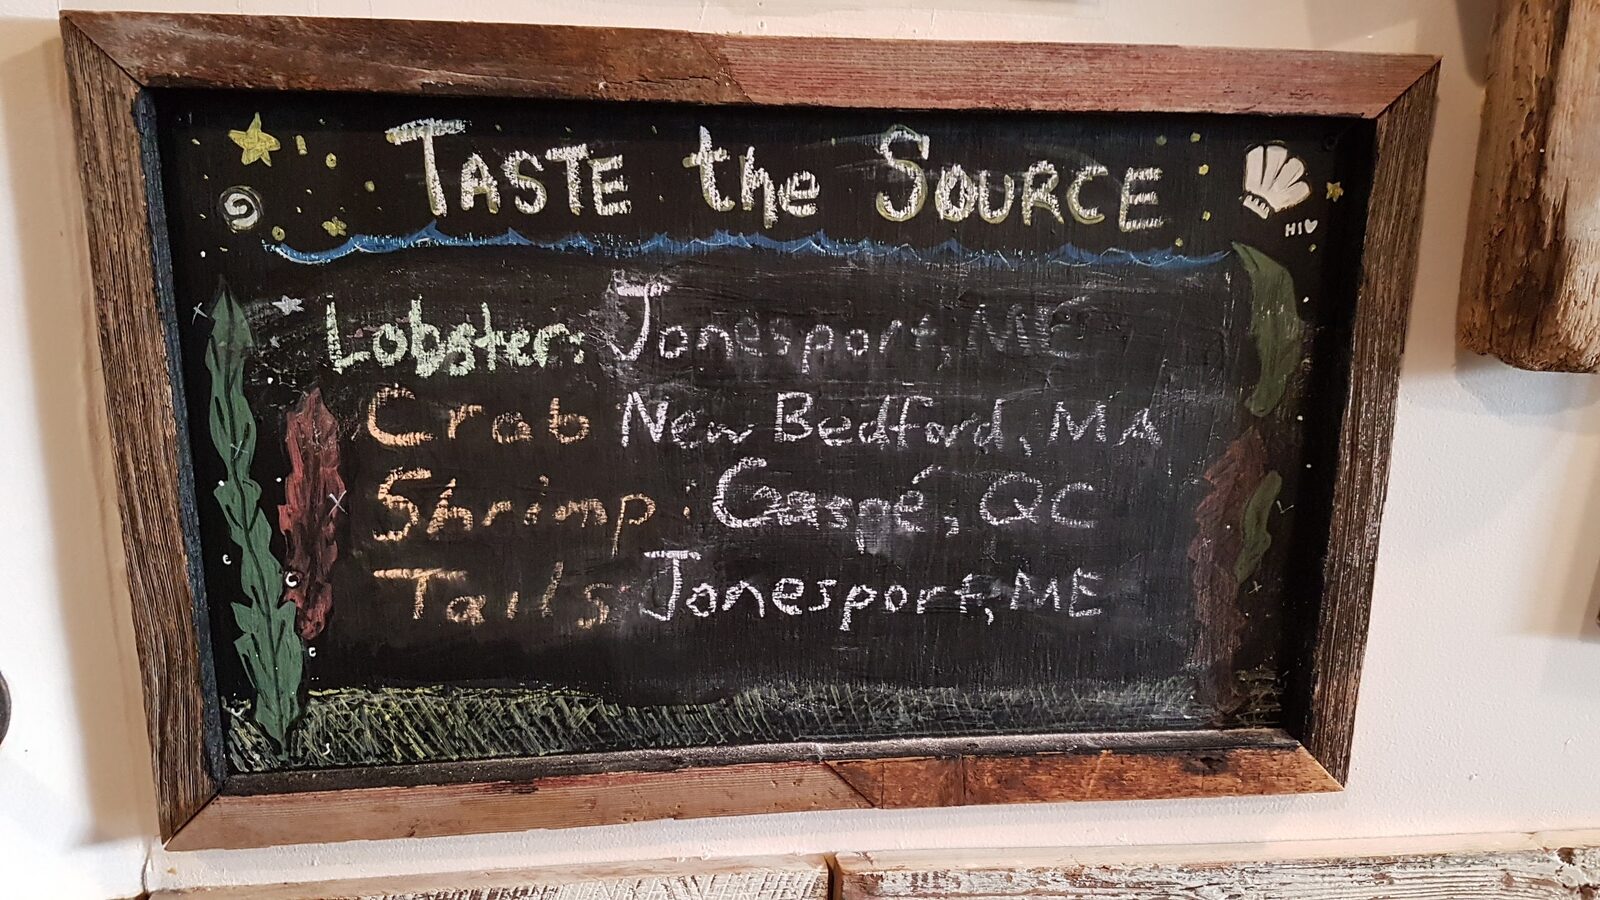 TASTE the SOURCE
HI
Lobster: Jonesport, ME
Crab New Bedford, MA
Shrimp: Gaspé, QC
Tails: Jonesport, ME